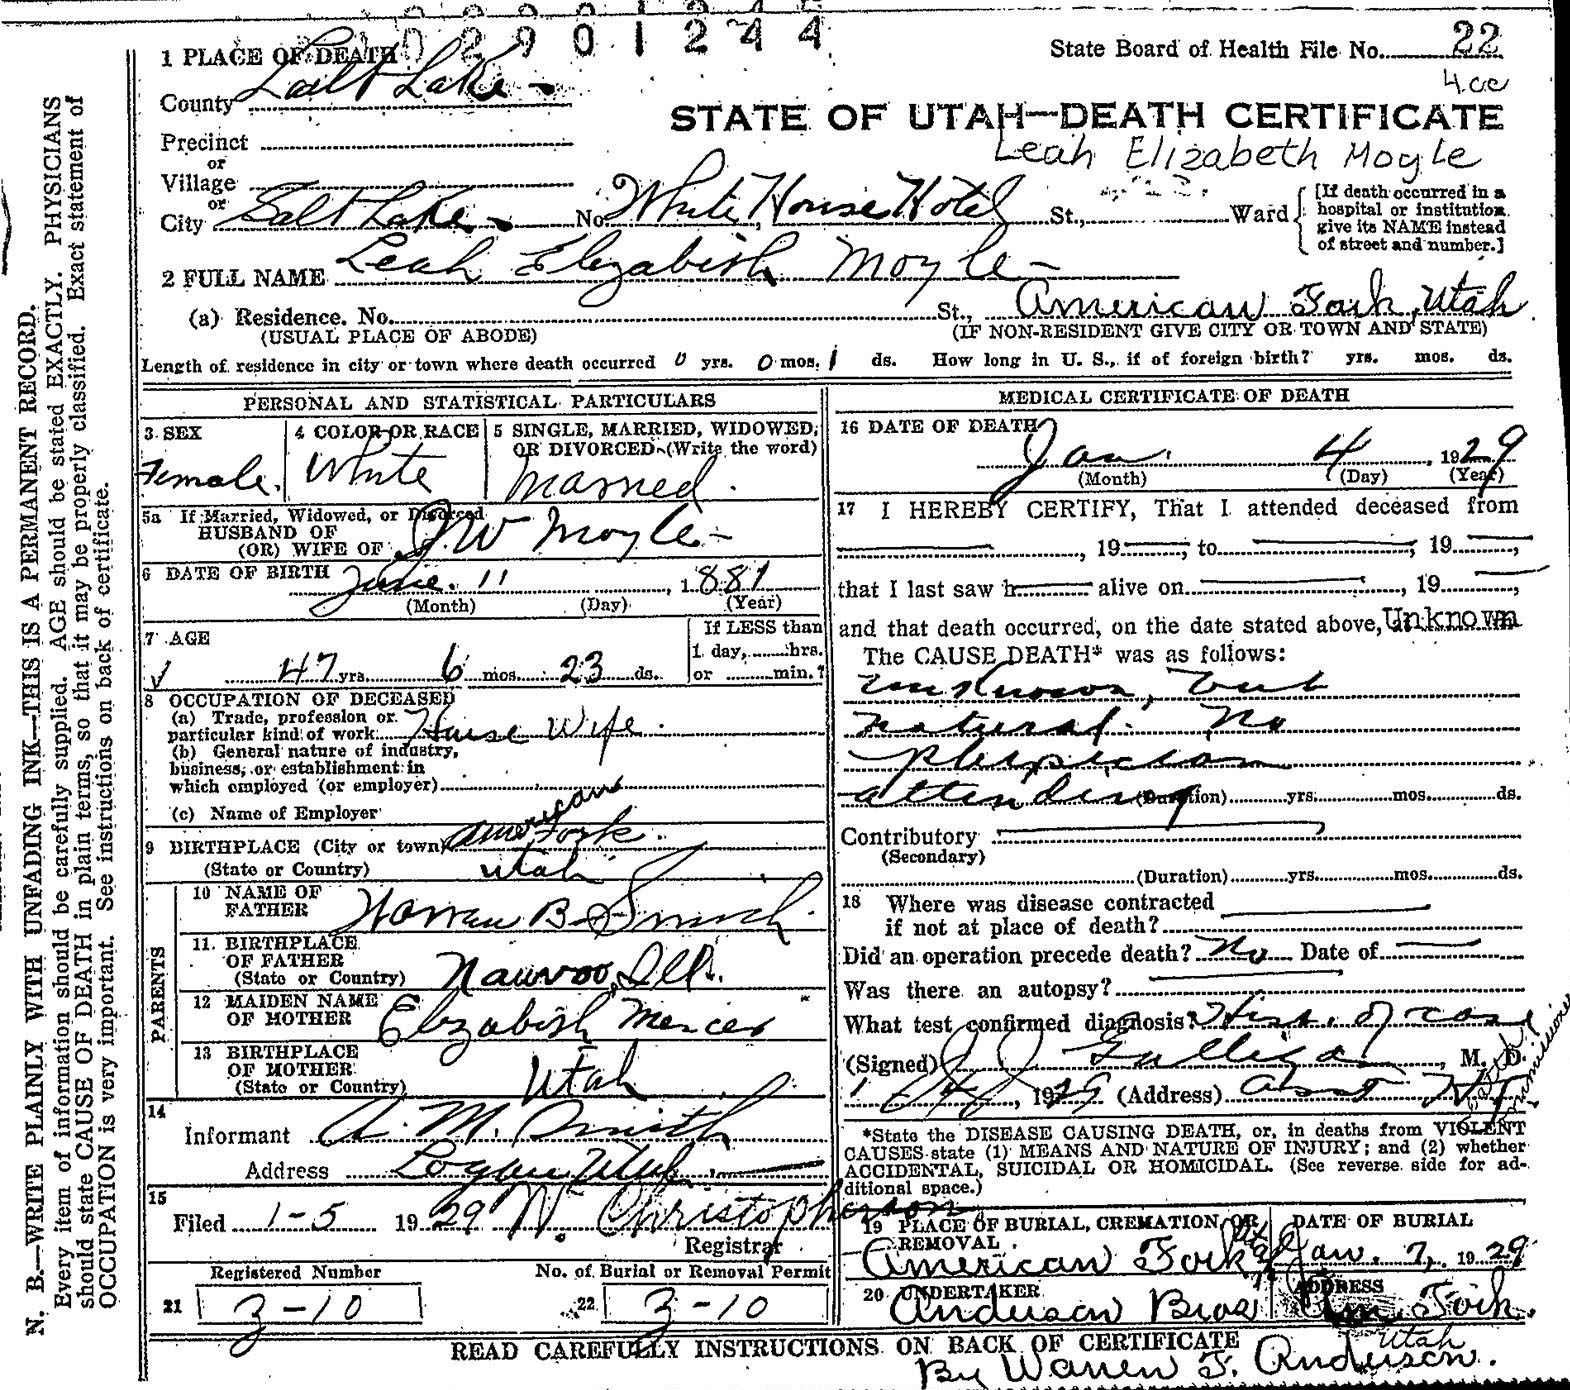 0290124 4
State Board of Health File No. 22
1 PLACE OF DEATH
County Salt Lake
STATE OF UTAH—DEATH CERTIFICATE
Leah Elizabeth Moyle
Precinct
or
Village
or
City Salt Lake No. White House Hotel St., Ward
[If death occurred in a hospital or institution give its NAME instead of street and number.]
2 FULL NAME Leah Elizabeth Moyle
(a) Residence. No. St., American Fork, Utah
(USUAL PLACE OF ABODE) (IF NON-RESIDENT GIVE CITY OR TOWN AND STATE)
Length of residence in city or town where death occurred 0 yrs. 0 mos. 1 ds. How long in U. S., if of foreign birth? yrs. mos. ds.
PERSONAL AND STATISTICAL PARTICULARS
3 SEX
Female.
4 COLOR OR RACE
White
5 SINGLE, MARRIED, WIDOWED, OR DIVORCED (Write the word)
Married.
5a If Married, Widowed, or Divorced
HUSBAND OF
(OR) WIFE OF J W Moyle
6 DATE OF BIRTH June. 11, 1881
(Month) (Day) (Year)
7 AGE
47 yrs. 6 mos. 23 ds.
If LESS than
1 day, hrs.
or min.?
8 OCCUPATION OF DECEASED
(a) Trade, profession or
particular kind of work House Wife.
(b) General nature of industry,
business, or establishment in
which employed (or employer)
(c) Name of Employer
9 BIRTHPLACE (City or town) American Fork.
(State or Country) Utah
PARENTS
10 NAME OF
FATHER Warren B. Smith.
11. BIRTHPLACE
OF FATHER
(State or Country) Nauvoo, Ill.
12 MAIDEN NAME
OF MOTHER Elizabeth Mercer
13 BIRTHPLACE
OF MOTHER
(State or Country) Utah
14
Informant A. M. Smith
Address Logan Utah
15
Filed 1-5 1929 W. Christopherson
Registrar
Registered Number
21 3-10
No. of Burial or Removal Permit
22 3-10
MEDICAL CERTIFICATE OF DEATH
16 DATE OF DEATH
Jan. 4, 1929
(Month) (Day) (Year)
17 I HEREBY CERTIFY, That I attended deceased from
, 19 , to , 19 ,
that I last saw h alive on , 19 ,
and that death occurred, on the date stated above, at Unknown m
The CAUSE DEATH* was as follows:
unknown, but
natural. No
physician
attending (Duration) yrs. mos. ds.
Contributory
(Secondary)
(Duration) yrs. mos. ds.
18 Where was disease contracted
if not at place of death?
Did an operation precede death? No Date of
Was there an autopsy?
What test confirmed diagnosis? Hist. of case
(Signed) J J Galligan, M. D.
1/4, 1929. (Address) Asst Health Commissioner
*State the DISEASE CAUSING DEATH, or, in deaths from VIOLENT
CAUSES state (1) MEANS AND NATURE OF INJURY; and (2) whether
ACCIDENTAL, SUICIDAL OR HOMICIDAL. (See reverse side for ad-
ditional space.)
19 PLACE OF BURIAL, CREMATION, OR
REMOVAL
American Fork Utah
DATE OF BURIAL
Jan. 7, 1929
20 UNDERTAKER
Anderson Bros
ADDRESS
Am. Fork.
Utah
READ CAREFULLY INSTRUCTIONS ON BACK OF CERTIFICATE
By Warren F. Anderson.
N. B.—WRITE PLAINLY WITH UNFADING INK—THIS IS A PERMANENT RECORD.
Every item of information should be carefully supplied. AGE should be stated EXACTLY. PHYSICIANS
should state CAUSE OF DEATH in plain terms, so that it may be properly classified. Exact statement of
OCCUPATION is very important. See instructions on back of certificate.